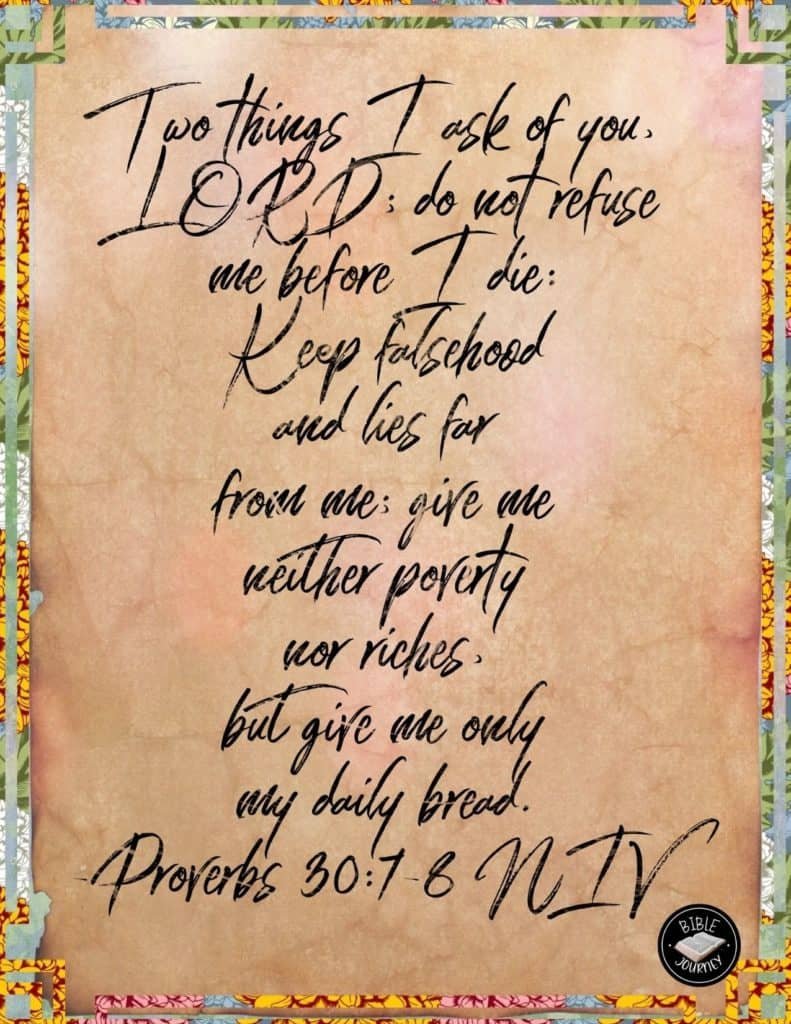 Two things I ask of you,
LORD; do not refuse
me before I die:
Keep falsehood
and lies far
from me; give me
neither poverty
nor riches,
but give me only
my daily bread.
-Proverbs 30:7-8 NIV
BIBLE
JOURNEY